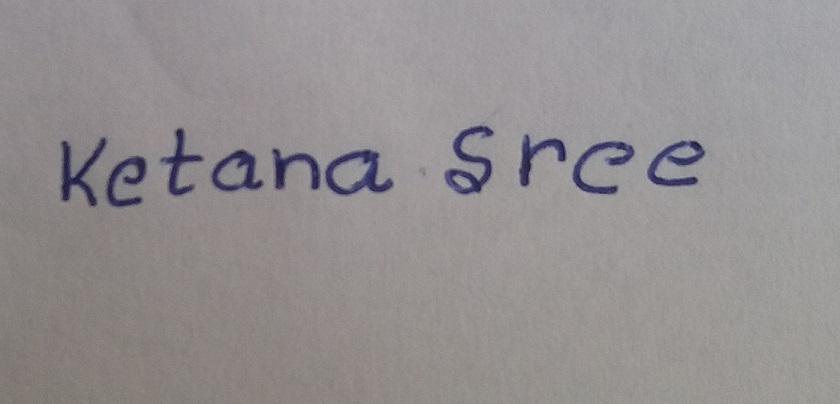 Ketana Sree